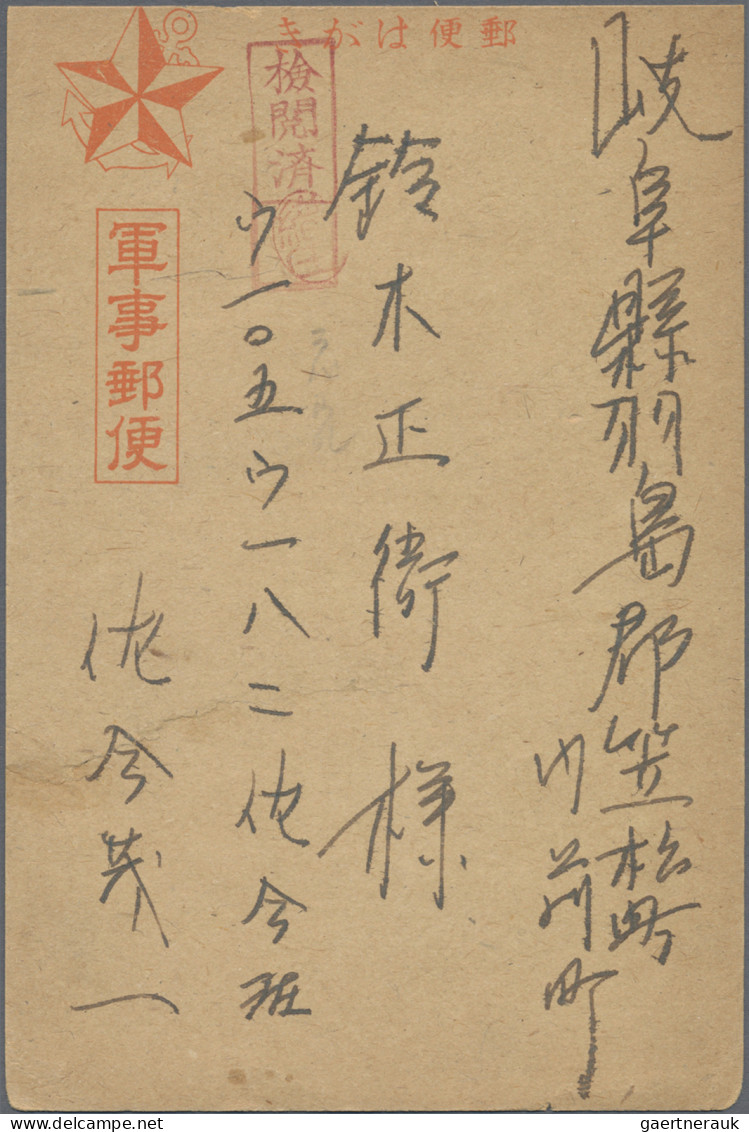 郵便はがき
岐阜縣羽島郡笠松町
門前町
鈴木正衛様
検閲済
ウ一〇五ウ一八二佐合班
佐合茂一
軍事郵便
gaertnerauk